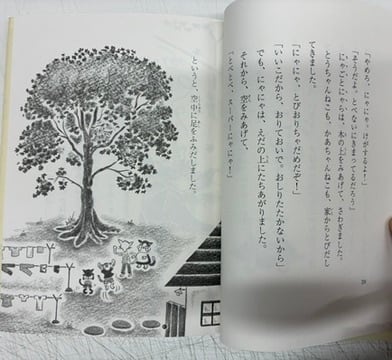 「やめろ、にゃにゃ、けがするよー！」
「そうだよ。とべないにきまってるだろう」
にゃごとにゃらは、木の上をみあげて、さわぎました。
とうちゃんねこも、かあちゃんねこも、家からとびだし
てきました。
「にゃにゃ、とびおりちゃだめだぞ！」
「いいこだから、おりておいで。おしりたたかないから」
でも、にゃにゃは、えだの上にたちあがりました。
それから、空をみあげて、
「とべとべ、スーパーにゃにゃ！」
というと、空中に足をふみだしました。